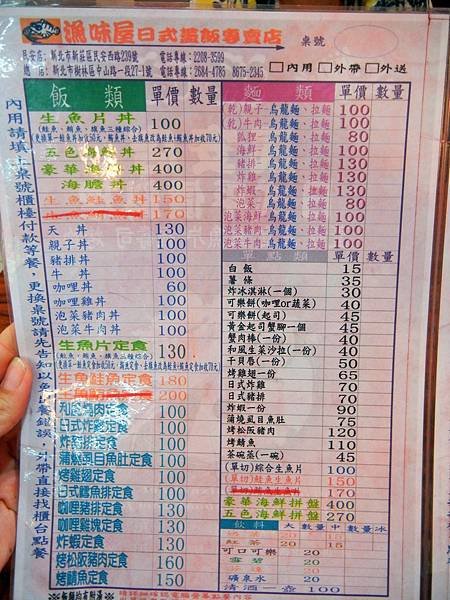 漁味屋日式蓋飯專賣店
桌號
民安店：新北市新莊區民安西路239號 電話專線：2208-3599
總 店：新北市樹林區中山路一段27-1號 電話專線：2684-4765 8675-2345
□內用 □外帶 □外送
飯 類 單價 數量
生魚片丼 100
(鮭魚、鮪魚、旗魚三種綜合)
五色海鮮丼 270
豪華海鮮丼 400
海膽丼 400
生魚鮭魚丼 150
170
天 丼 130
親子丼 100
豬排丼 100
牛 丼 100
咖哩丼 60
咖哩雞丼 100
泡菜豬肉丼 100
泡菜牛肉丼 100
生魚片定食 130
(鮭魚、鮪魚、旗魚三種綜合)
生魚鮭魚定食 180
200
100
日式炸雞定食 100
炸豬排定食 100
蒲燒虱目魚肚定食 100
烤雞翅定食 100
日式鱈魚排定食 100
咖哩豬排定食 130
咖哩雞塊定食 100
炸蝦定食 130
烤松阪豬肉定食 160
烤鯖魚定食 150
麵 類 單價 數量
(乾)親子-烏龍麵、拉麵 100
(乾)牛肉-烏龍麵、拉麵 100
狐狸-烏龍麵、拉麵 80
海鮮-烏龍麵、拉麵 100
豬排-烏龍麵、拉麵 130
炸雞-烏龍麵、拉麵 130
炸蝦-烏龍麵、拉麵 150
泡菜-烏龍麵、拉麵 80
泡菜海鮮-烏龍麵、拉麵 100
泡菜豬肉-烏龍麵、拉麵 100
泡菜牛肉-烏龍麵、拉麵 100
單點類 單價 數量
白飯 15
薯條 35
炸冰淇淋(一個) 30
可樂餅(咖哩or蔬菜) 40
可樂餅(起司) 45
黃金起司蟹腳一個 45
蟹肉棒(一份) 40
和風生菜沙拉(一份) 40
干貝唇(一份) 50
烤雞翅一份 50
日式炸雞 60
日式豬排 70
炸蝦一份 90
蒲燒虱目魚肚 75
烤松阪豬肉 120
烤鯖魚 110
茶碗蒸(一碗) 45
(單切)綜合生魚片 100
(單切)鮭魚生魚片 150
170
豪華海鮮拼盤 400
五色海鮮拼盤 270
飲料 大 數量 中 數量 冰
紅茶 20 15
可口可樂 20
雪碧 20
礦泉水 20
清酒一壺 100
內用請填上桌號櫃檯付款等餐，更換桌號請先告知以免送餐錯誤，外帶直接找櫃台點餐